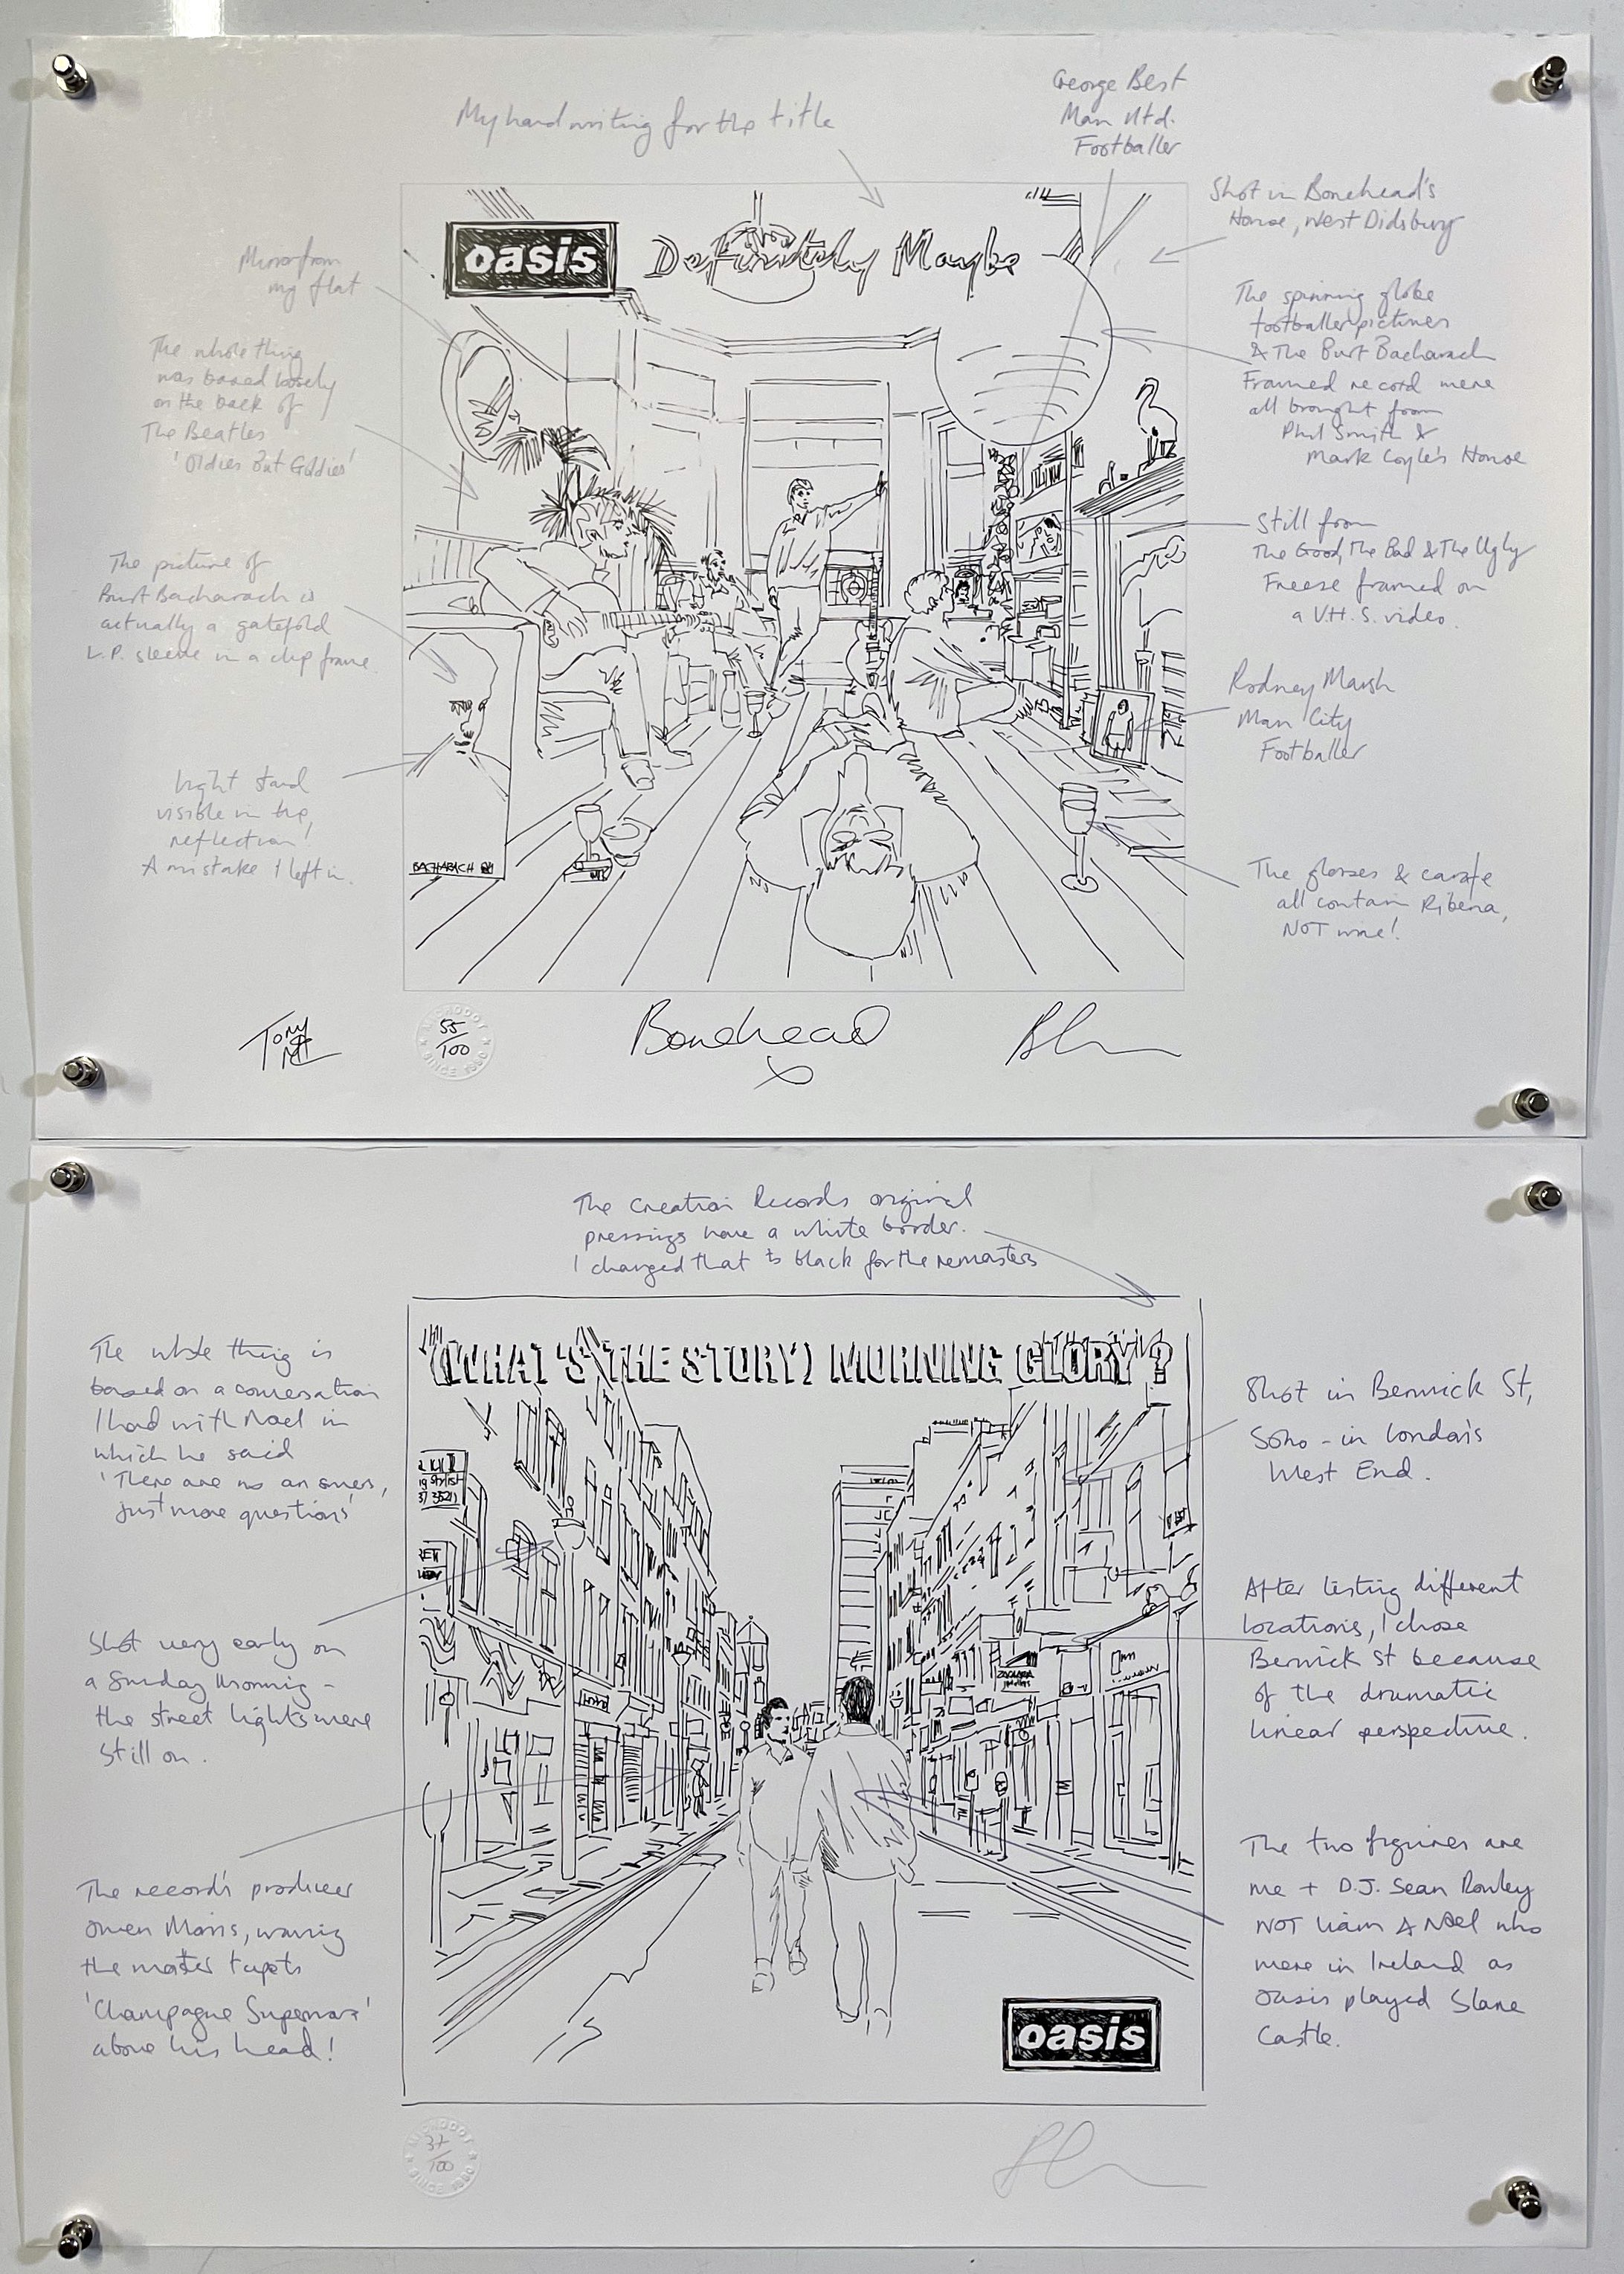 My handwriting for the title
George Best
Man Utd.
Footballer
Shot in Bonehead's
House, West Didsbury
oasis
Definitely Maybe
Mirror from
my flat
The whole thing
was based loosely
on the back of
The Beatles
'Oldies But Goldies'
The spinning globe
footballer pictures
& The Burt Bacharach
Framed record were
all brought from
Phil Smith &
Mark Coyle's House
Still from
The Good, The Bad & The Ugly
Freeze framed on
a V.H.S. video.
The picture of
Burt Bacharach is
actually a gatefold
L.P. sleeve in a clip frame.
Rodney Marsh
Man City
Footballer
Light stand
visible in the
reflection!
A mistake I left in.
BACHARACH
The glasses & carafe
all contain Ribena,
NOT wine!
Tony
MICRODOT
SINCE 1990
55
100
Bonehead
x
The Creation Records original
pressings have a white border.
I changed that to black for the remasters
(WHAT'S THE STORY) MORNING GLORY?
The whole thing is
based on a conversation
I had with Noel in
which he said
'There are no answers,
just more questions'
Shot in Berwick St,
Soho - in London's
West End.
Shot very early on
a Sunday Morning -
the street lights were
still on.
After testing different
locations, I chose
Berwick St because
of the dramatic
linear perspective.
The record's producer
Owen Morris, waving
the master tapes
'Champagne Supernova'
above his head!
The two figures are
me + D.J. Sean Rowley
NOT Liam & Noel who
were in Ireland as
Oasis played Slane
Castle.
oasis
MICRODOT
SINCE 1990
37
100